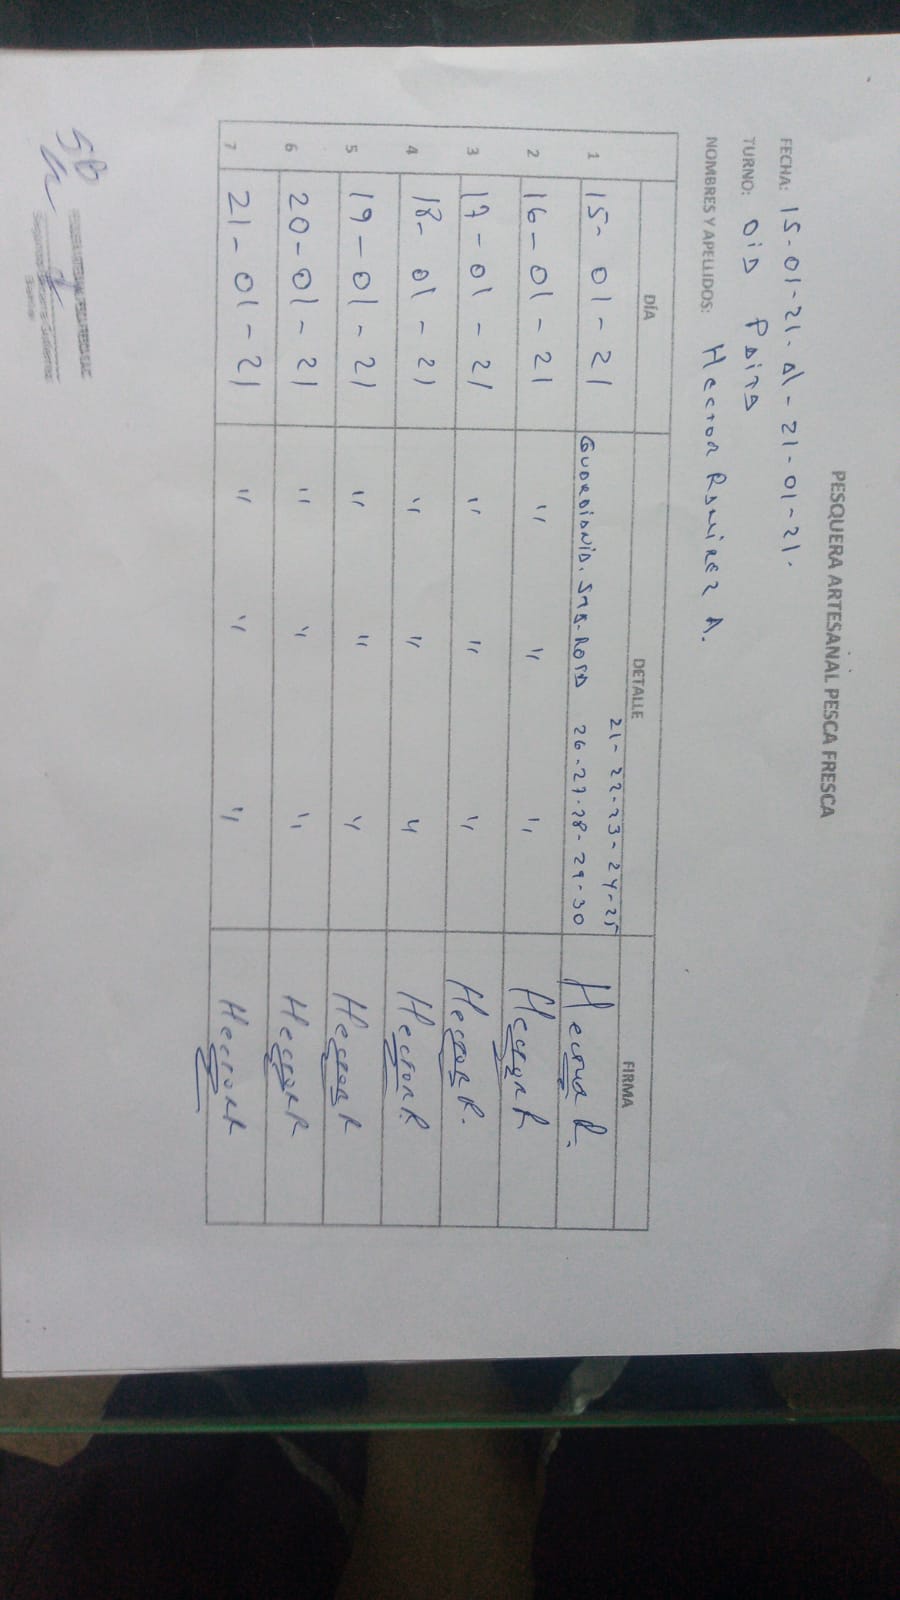 PESQUERA ARTESANAL PESCA FRESCA
FECHA: 15-01-21. al - 21-01-21.
TURNO: DIA PAITA
NOMBRES Y APELLIDOS: HECTOR RAMIREZ A.
DÍA DETALLE FIRMA
1 15-01-21 GUARDIANIA. STA. ROSA 21-22-23-24-25 26-27-28-29-30 Hector R.
2 16-01-21 " " " Hector R
3 17-01-21 " " " Hector R.
4 18-01-21 " " " Hector R.
5 19-01-21 " " " Hector R
6 20-01-21 " " " Hector R
7 21-01-21 " " " Hector R